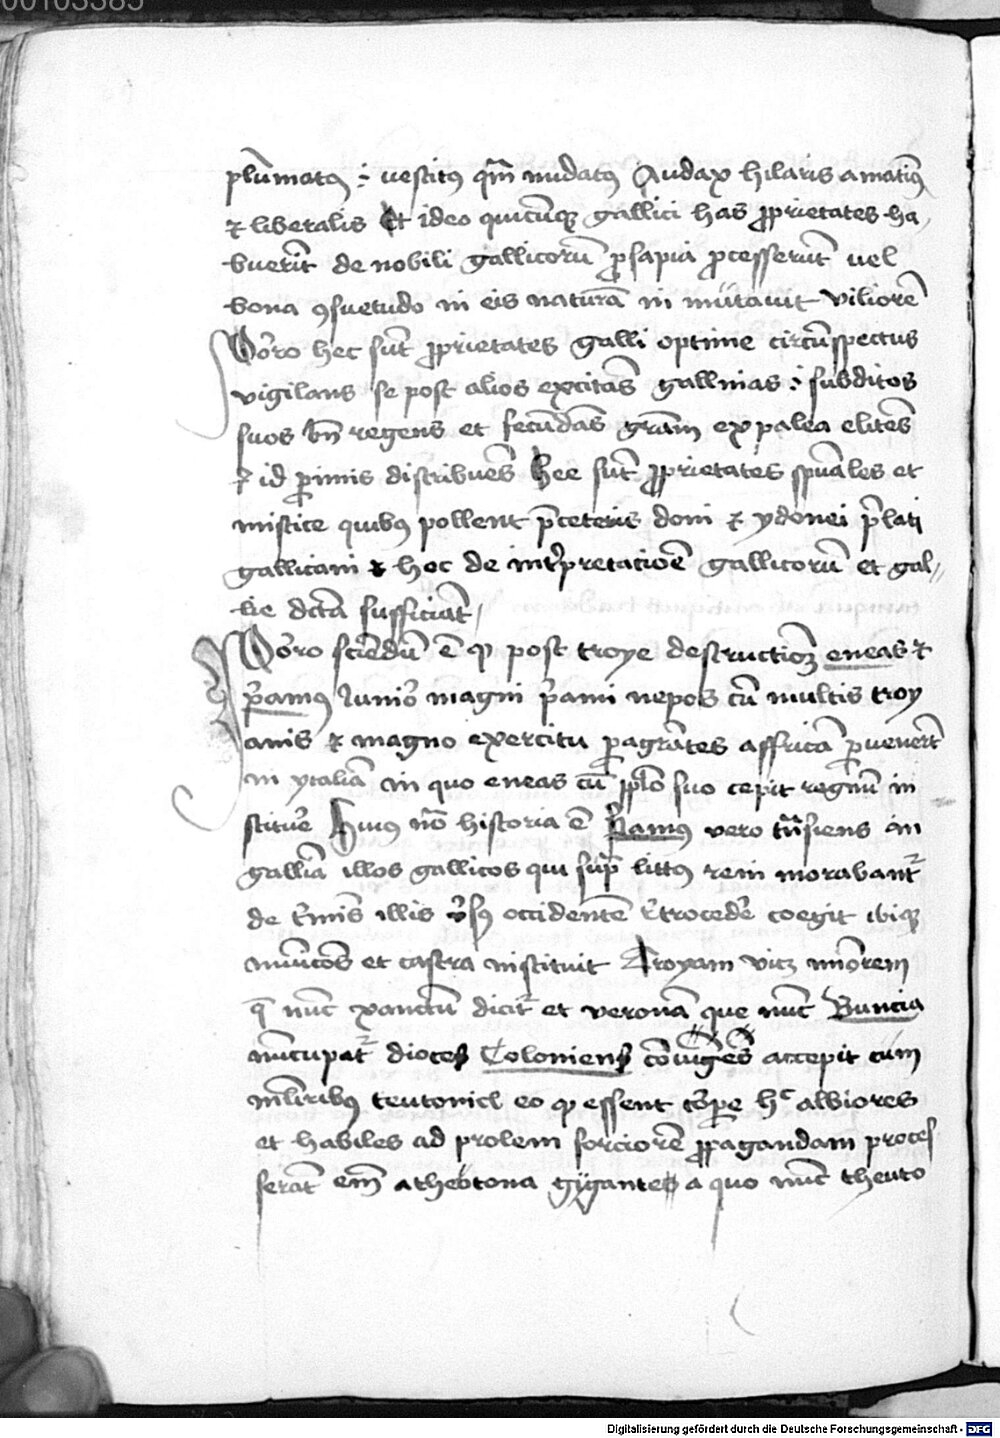 00103385
plumatus : vestitus quam nudatus Audax hilaris amatius
et liberalis Et ideo quicunque gallici has proprietates ha
buerint de nobili gallicorum prosapia processerunt vel
bona consuetudo in eis naturam in mutavit viliorem
Porro hec sunt proprietates galli optime circumspectus
vigilans se post alios excitans gallinas : subditos
suos bene regens et fecundans granum ex palea elitens
et id primis distribuens hee sunt proprietates spirituales et
mistice quibus pollent preceteris doni et ydonei prelati
gallicani et hec de interpretatione gallicorum et gal
lie dicta sufficiant
Porro sciendum est quod post troye destructionem eneas et
priamus Iunior magni priami nepos cum multis troy
anis et magno exercitu peragrantes affricam pervenerunt
in ytaliam in quo eneas cum populo suo cepit regnum in
stituere Huius vero historia est Priamus vero transiens in
galliam illos gallicos qui super littus reni morabantur
de terminis illis versus occidentem retrocedere coegit ibique
municiones et castra instituit Troyam videlicet minorem
que nunc xanctum dicitur et veronam que nunc Buncia
nuncupatur diocesis Coloniensis coniuges accepit cum
mulieribus teutonici eo quod essent corpore hec albiores
et habiles ad prolem forciorem propagandam proces
serant enim atheotona gygantes a quo nunc theuto
Digitalisierung gefördert durch die Deutsche Forschungsgemeinschaft - DFG